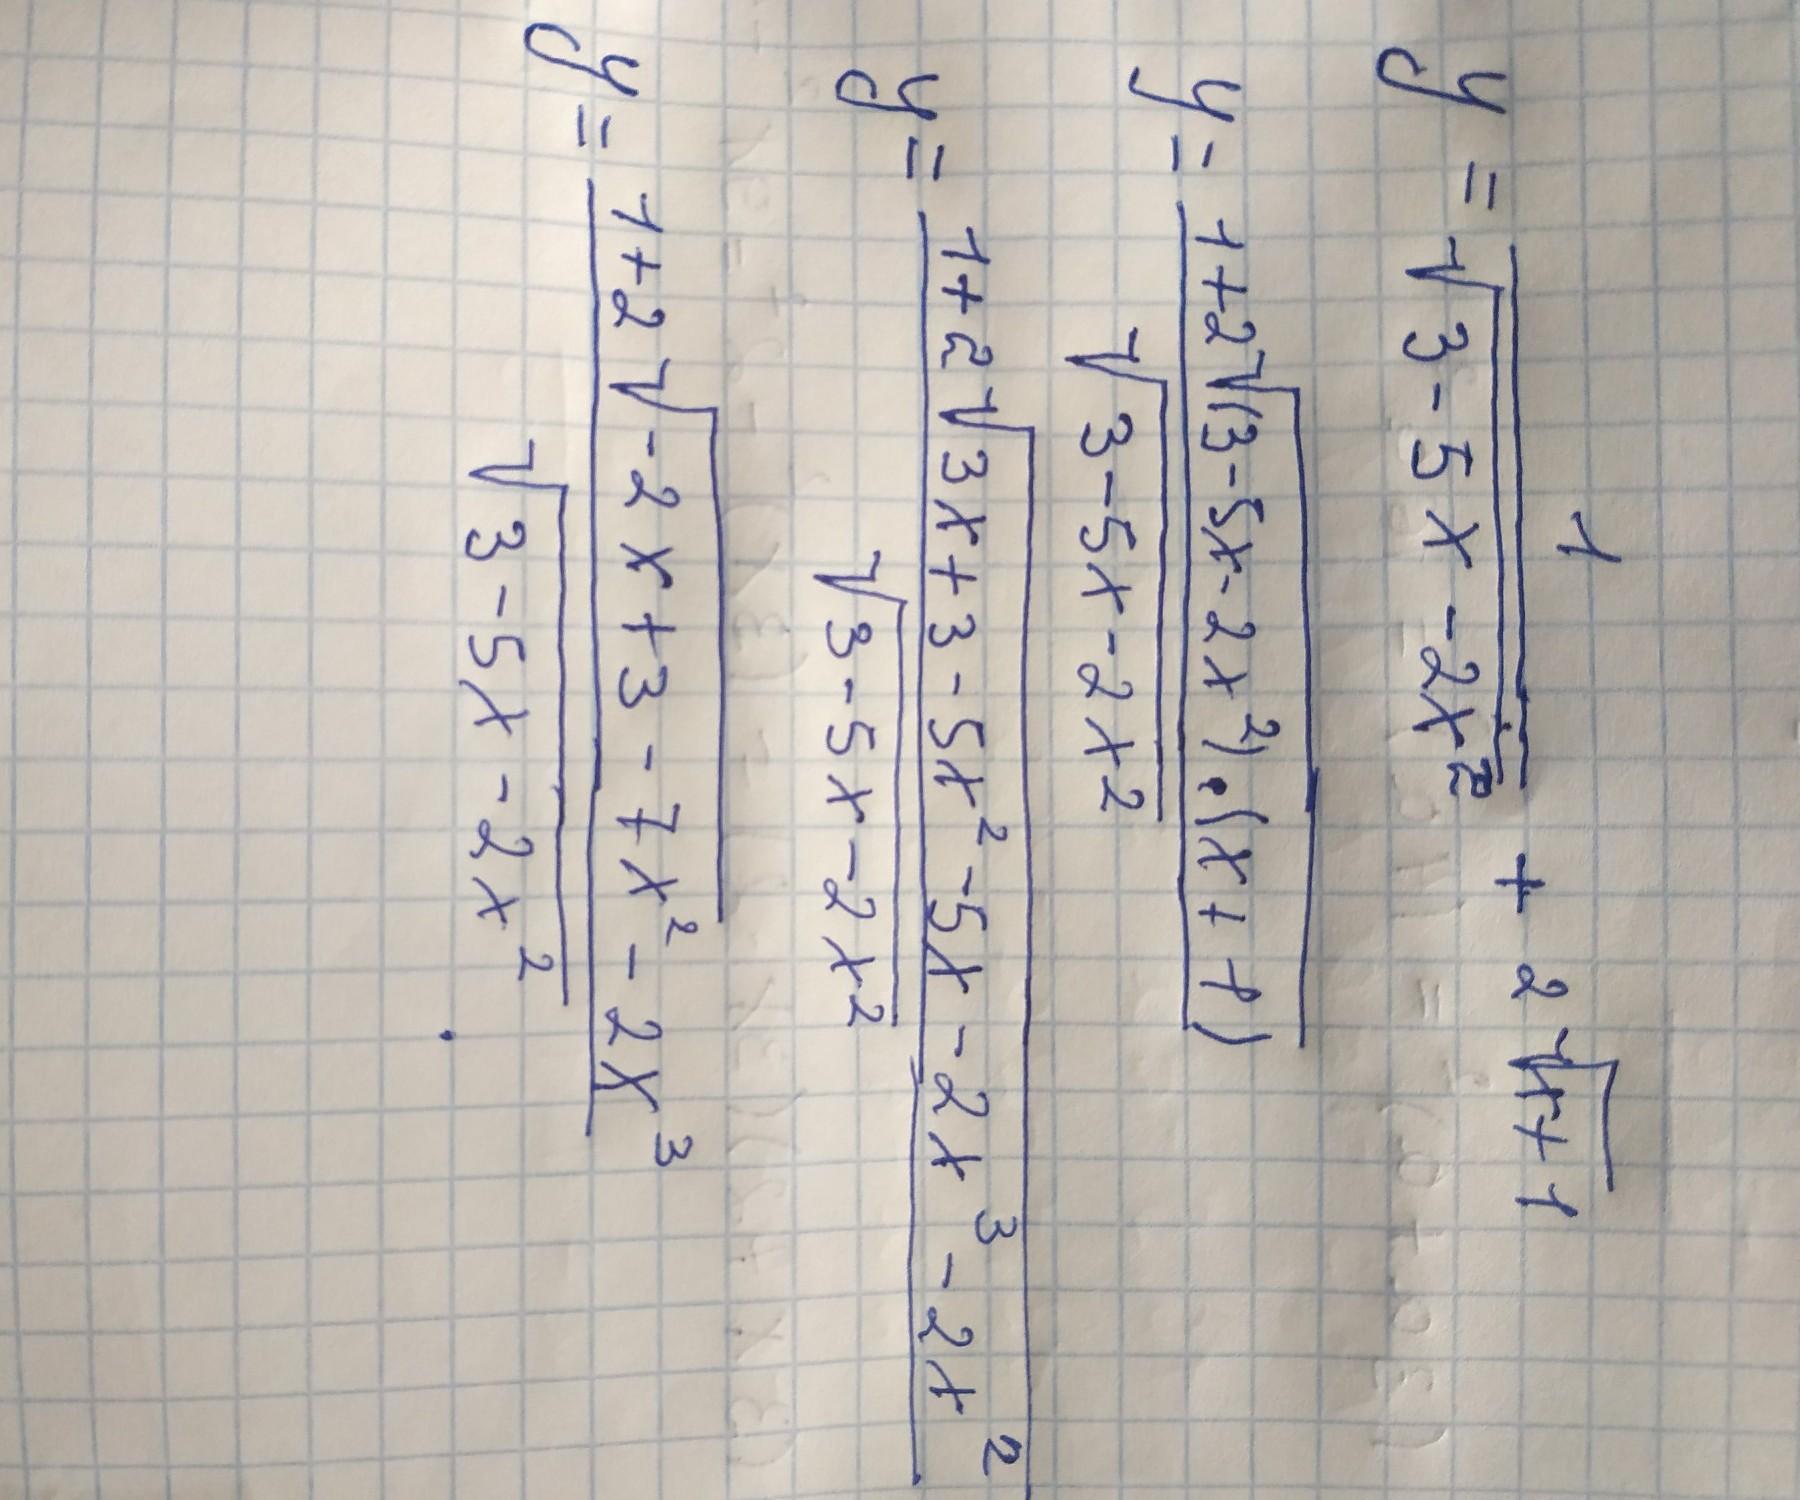 y = 1/√(3-5x-2x²) + 2√(x+1)
y = (1+2√((3-5x-2x²)·(x+1)))/√(3-5x-2x²)
y = (1+2√(3x+3-5x²-5x-2x³-2x²))/√(3-5x-2x²)
y = (1+2√(-2x+3-7x²-2x³))/√(3-5x-2x²).